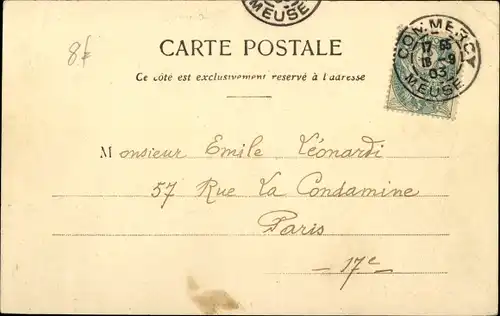 MEUSE
8f
CARTE POSTALE
COMMERCY
17 65
18 -9
03
MEUSE
Ce côté est exclusivement reservé à l'adresse
Monsieur Emile Léonardi
57 Rue La Condamine
Paris
- 17e -